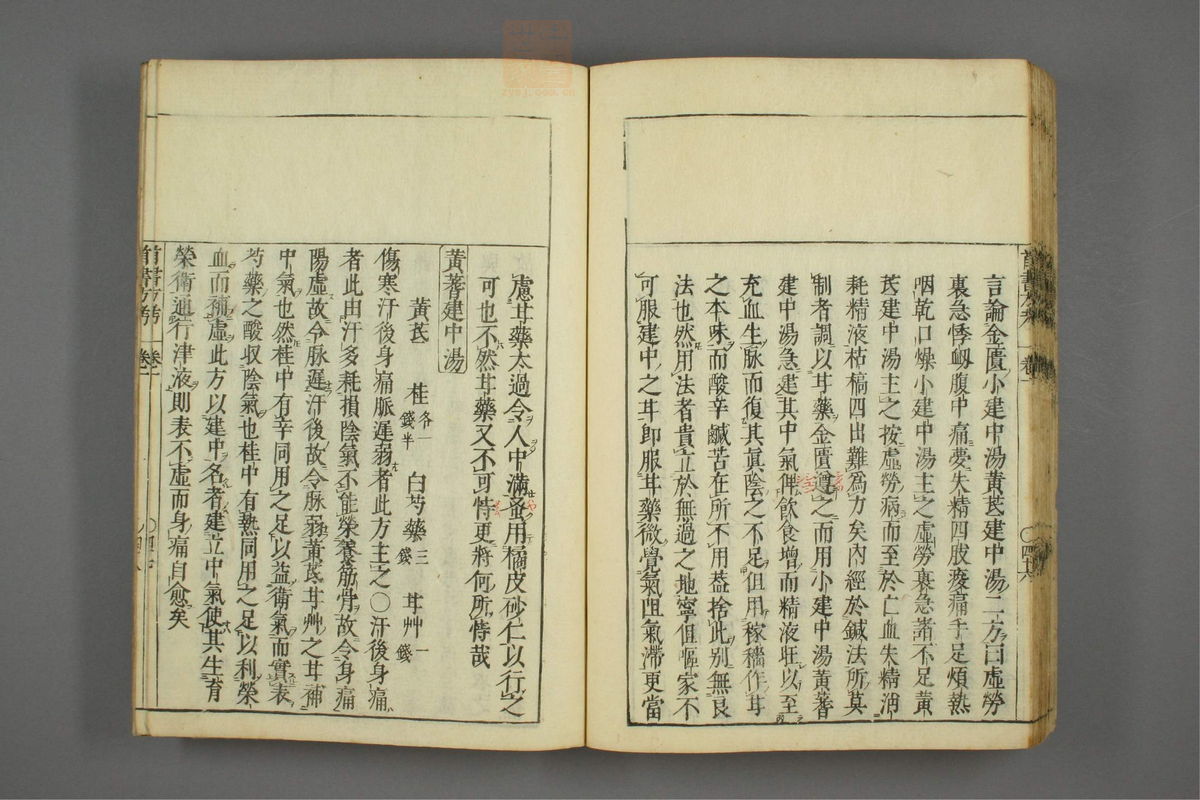 言論金匱小建中湯黃芪建中湯二方曰虛勞
裏急悸衂腹中痛夢失精四肢痠痛手足煩熱
咽乾口燥小建中湯主之虛勞裏急諸不足黃
芪建中湯主之按虛勞病而至於亡血失精消
耗精液枯槁四出難爲力矣內經於鍼法所莫
制者調以甘藥金匱遵之而用小建中湯黃蓍
建中湯急建其中氣俾飲食增而精液旺以至
充血生脉而復其眞陰之不足但用稼穡作甘
之本味而酸辛鹹苦在所不用葢捨此別無良
法也然用法者貴立於無過之地寧但嘔家不
可服建中之甘卽服甘藥微覺氣阻氣滯更當
慮甘藥太過令人中滿蚤用橘皮砂仁以行之
可也不然甘藥又不可恃更將何所恃哉
黃蓍建中湯
黃芪 桂各一錢半 白芍藥三錢 甘艸一錢
傷寒汗後身痛脈遲弱者此方主之〇汗後身痛
者此由汗多耗損陰氣不能榮養筋骨故令身痛
陽虛故令脈遲汗後故令脉弱黃芪甘艸之甘補
中氣也然桂中有辛同用之足以益衛氣而實表
芍藥之酸収陰氣也桂中有熱同用之足以利榮
血而補虛此方以建中名者建立中氣使其生育
榮衛通行津液則表不虛而身痛自愈矣